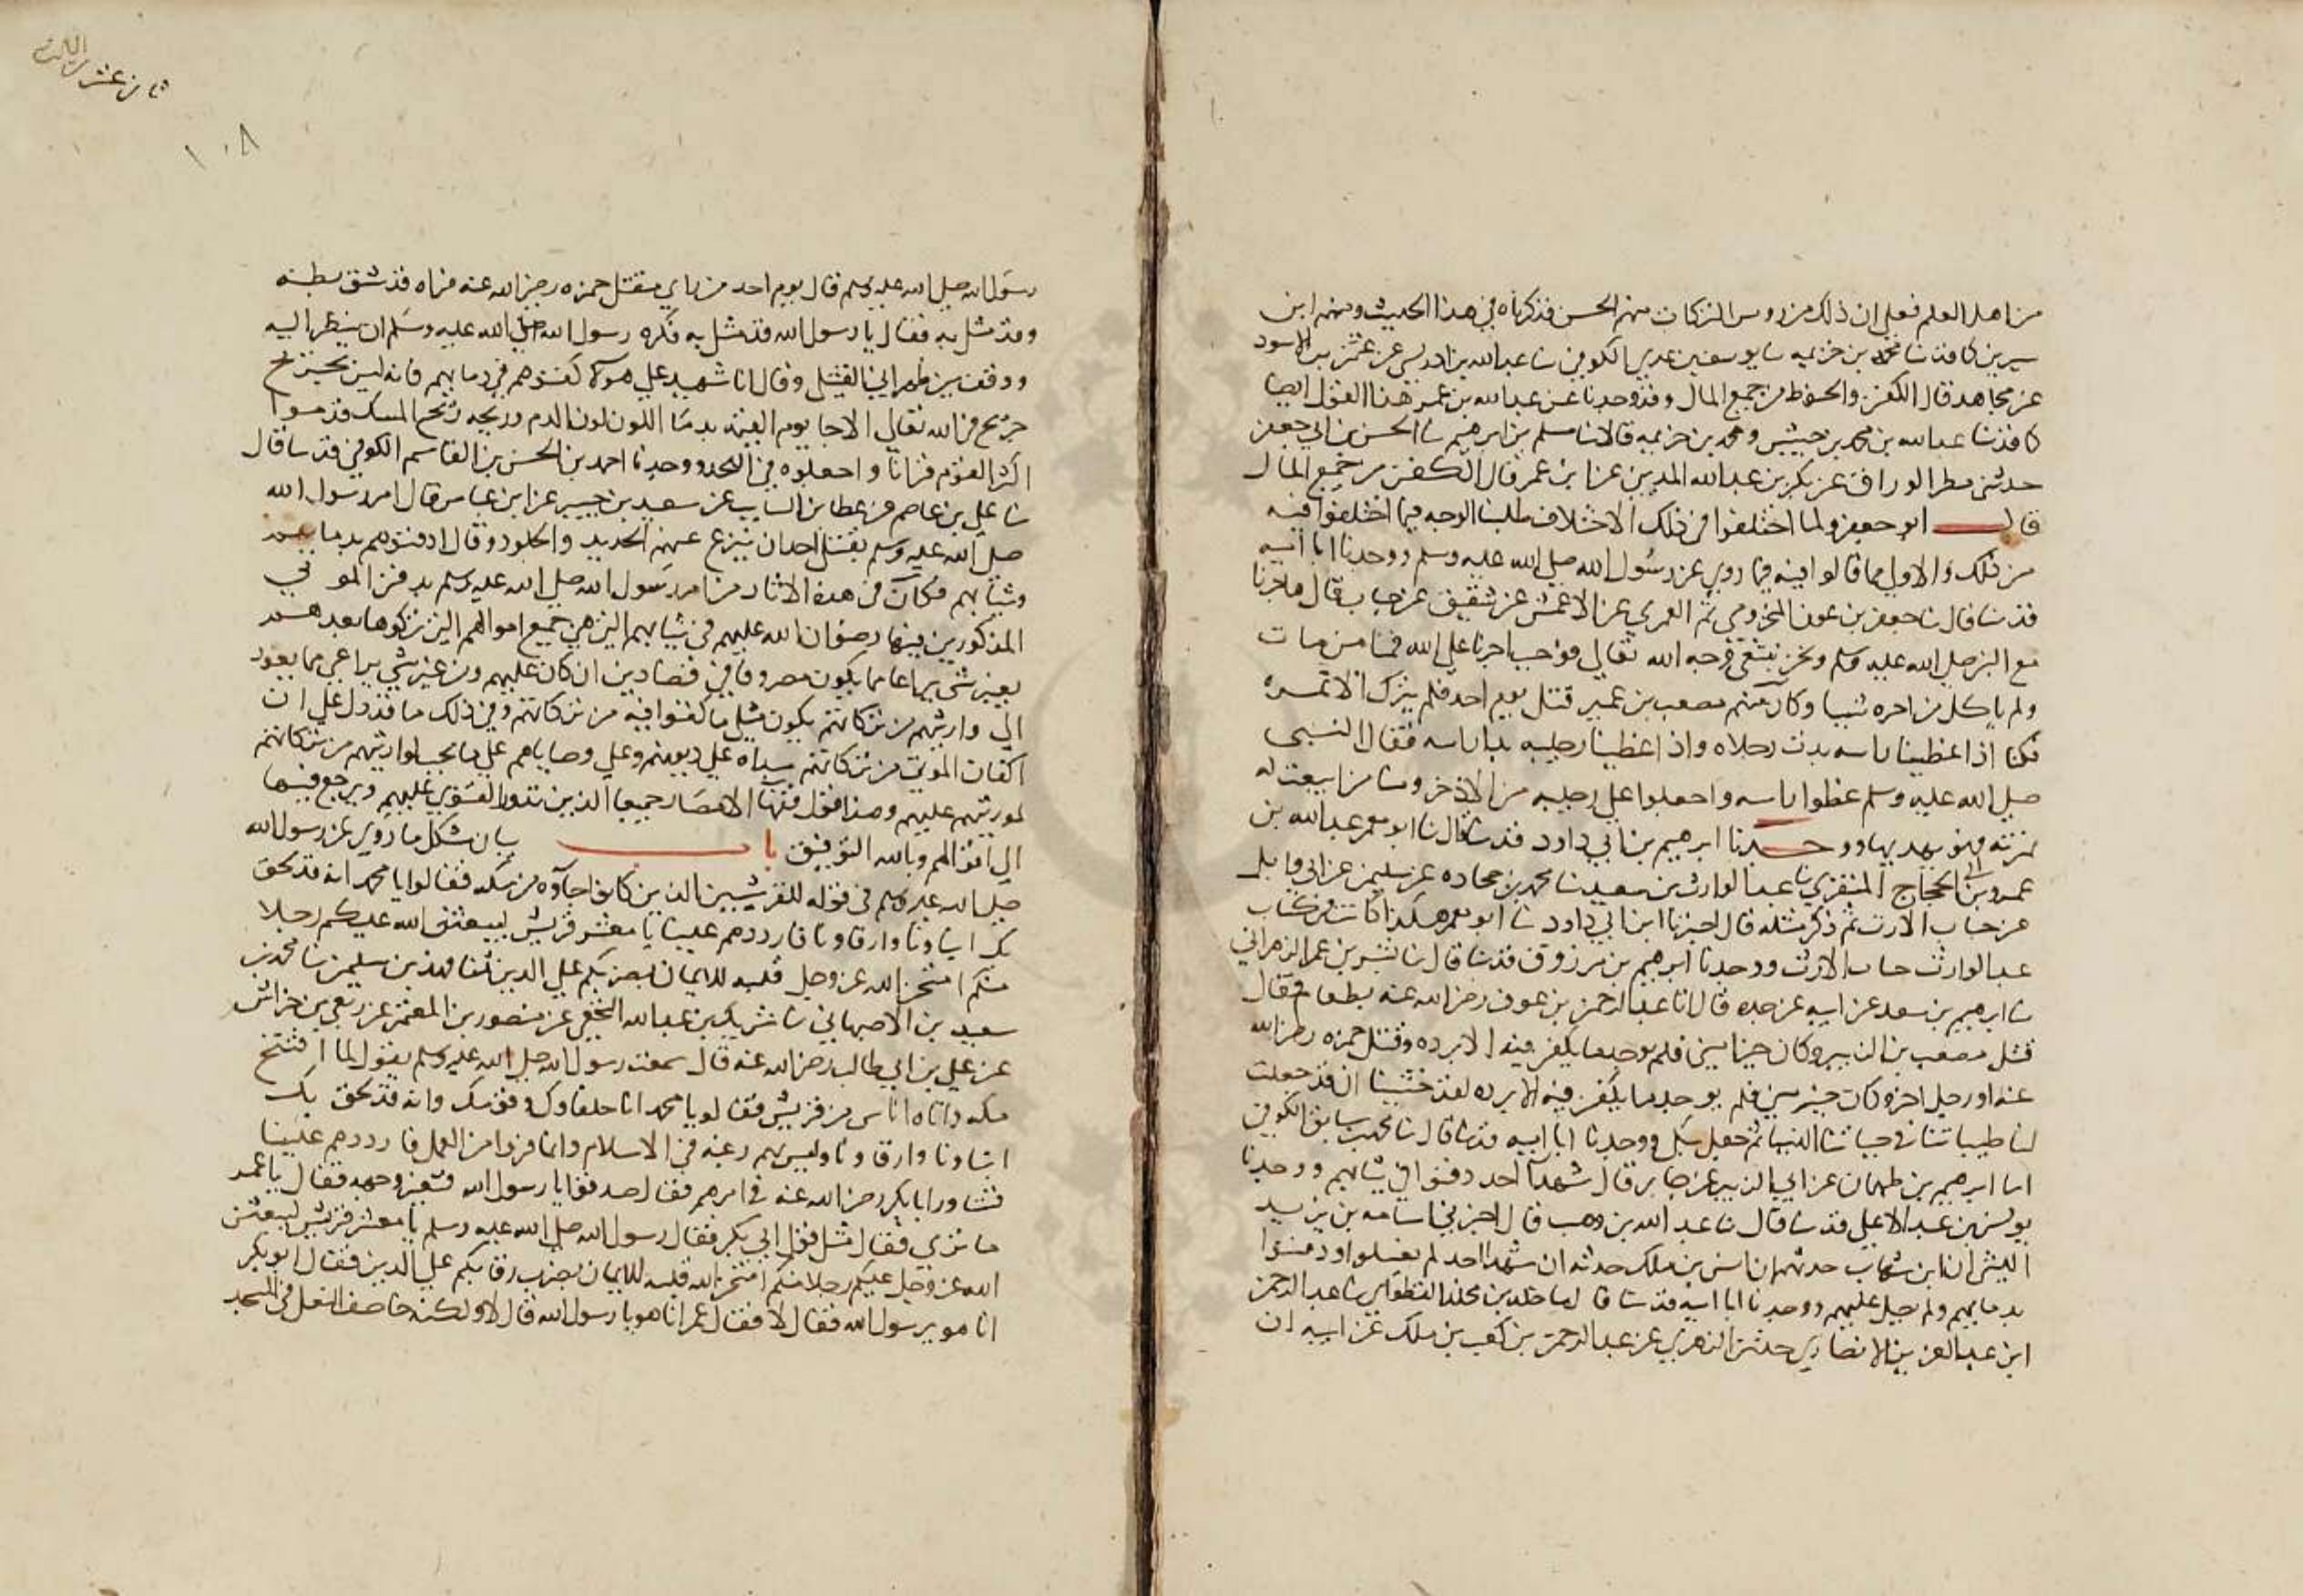 من اهل العلم فعلي ان ذلك من روس التركات منهم الحسن فذكرناه في هذا الحديث ومنهم ابن
سيرين كما قد ثنا محمد بن خزيمه ثنا يوسف بن عدي الكوفي ثنا عبد الله بن ادريس عن عثمن بن الاسود
عن مجاهد قال الكفن والحنوط من جميع المال وقد وجدنا عن عبد الله بن عمر هذا القول ايضا
كما قد ثنا عبد الله بن محمد بن حبيش ومحمد بن خزيمه قالا ثنا مسلم بن ابرهيم ثنا الحسن بن ابي جعفر
حدثني مطر الوراق عن بكر بن عبد الله المديني عن ابن عمر قال الكفن من جميع المال
قال ابو جعفر ولما اختلفوا في ذلك الاختلاف طلبنا الوجه فيما اختلفوا فيه
من ذلك والاولي مما قالوا فيه فيما روي عن رسول الله صلي الله عليه وسلم ووجدنا ابا اميه
قد ثنا قال ثنا جعفر بن عون المخزومي ثم العمري عن الاعمش عن شقيق عن خباب قال هاجرنا
مع النبي صلي الله عليه وسلم ونحن نبتغي وجه الله تعالي فوجب اجرنا علي الله فمنا من مات
ولم ياكل من اجره شيبا وكان منهم مصعب بن عمير قتل يوم احد فلم يترك الا نمره
فكنا اذا غطينا راسه بدت رجلاه واذا غطينا رجليه بدا راسه فقال النبي
صلي الله عليه وسلم غطوا راسه واجعلوا علي رجليه من الاذخر ومنا من اينعت له
ثمرته فهو يهدبها ووجدنا ابرهيم بن ابي داود قد ثنا قال ثنا ابو معمر عبد الله بن
عمرو بن ابي الحجاج المنقري ثنا عبد الوارث بن سعيد ثنا محمد بن جحاده عن سليمن عن ابي وايل
عن خباب الارت ثم ذكر مثله قال اخبرنا ابن ابي داود ثنا ابو معمر هكذا كانت في كتاب
عبد الوارث خباب الارت ووجدنا ابرهيم بن مرزوق قد ثنا قال ثنا بشر بن عمر الزهراني
ثنا ابرهيم بن سعد عن ابيه عن جده قال اتا عبد الرحمن بن عوف رضي الله عنه بطعام فقال
قتل مصعب بن الزبير وكان خيرا مني فلم يوجد ما يكفن فيه الا برده وقتل حمزه رضي الله
عنه او رجل اخر وكان خير مني فلم يوجد ما يكفن فيه الا برده لقد خشينا ان قد جعلت
لنا طيباتنا في حياتنا الدنيا ثم جعل يبكي ووجدنا ابا اميه قد ثنا قال ثنا محمد بن سابق الكوفي
انا ابرهيم بن طهمان عن ابي الزبير عن جابر قال شهدا احد دفنوا في ثيابهم ووجدنا
يونس بن عبد الاعلي قد ثنا قال ثنا عبد الله بن وهب قال اخبرني اسامه بن زيد
الليثي ان ابن شهاب حدثهم ان انس بن ملك حدثه ان شهدا احد لم يغسلوا ودفنوا
بدمايهم ولم يصل عليهم ووجدنا ابا اميه قد ثنا قال ثنا خلد بن مخلد القطواني ثنا عبد الرحمن
ابن عبد العزيز الانصاري حدثني الزهري عن عبد الرحمن بن كعب بن ملك عن ابيه ان
١٠٨
رسول الله صلي الله عليه وسلم قال يوم احد من راي مقتل حمزه رضي الله عنه فراه قد شق بطنه
وقد مثل به فقال يا رسول الله قد مثل به فكره رسول الله صلي الله عليه وسلم ان ينظر اليه
ووقف بين ظهراني القتلي وقال انا شهيد علي هولاء كفنوهم في دمايهم فانه ليس يجرح
جرح في الله تعالي الا جا يوم القيمه يدما اللون لون الدم وريحه ريح المسك قدموا
اكثر القوم قرانا واجعلوه في اللحد ووجدنا احمد بن الحسن بن القاسم الكوفي قد ثنا قال
ثنا علي بن عاصم عن عطا بن السايب عن سعيد بن جبير عن ابن عباس قال امر رسول الله
صلي الله عليه وسلم بقتلي احد ان ينزع عنهم الحديد والجلود وقال ادفنوهم بدمايهم
وثيابهم فكان في هذه الاثار من امر رسول الله صلي الله عليه وسلم بدفن الموتي
المذكورين فيها رضوان الله عليهم في ثيابهم التي هي جميع اموالهم التي تركوها بعدهم
بغير شي يراعا مما يكون مصروفا في قضا دين ان كان عليهم ومن غير شي يراعي مما يعود
الي وارثهم من تركاتهم يكون مثل ما كفنوا فيه من تركاتهم وفي ذلك ما قد دل علي ان
اكفان الموتي من تركاتهم مبداه علي ديونهم وعلي وصاياهم علي ما يجب لوارثهم من تركاتهم
لمورثهم عليهم وهذا قول فقها الامصار جميعا الذين تدور الفتوي عليهم ويرجع فيها
الي اقوالهم وبالله التوفيق باب بيان مشكل ما روي عن رسول الله
صلي الله عليه وسلم في قوله للقرشيين الذين كانوا جاوه من مكه فقالوا يا محمد انه قد لحق
بك ابناونا وارقاونا فارددهم علينا يا معشر قريش ليبعثن الله عليكم رجلا
منكم امتحن الله عز وجل قلبه للايمان يضربكم علي الدين ثنا فهد بن سليمن ثنا محمد بن
سعيد بن الاصبهاني ثنا شريك بن عبد الله النخعي عن منصور بن المعتمر عن ربعي بن خراش
عن علي بن ابي طالب رضي الله عنه قال سمعت رسول الله صلي الله عليه وسلم يقول لما افتتح
مكه واتاه اناس من قريش فقالو يا محمد انا حلفاوك وقومك وانه قد لحق بك
ابناونا وارقاونا وليس بهم رغبه في الاسلام وانما فروا من العمل فارددهم علينا
فشاور ابا بكر رضي الله عنه في امرهم فقال صدقوا يا رسول الله فتغير وجهه فقال يا عمر
ما تري فقال مثل قول ابي بكر فقال رسول الله صلي الله عليه وسلم يا معشر قريش ليبعثن
الله عز وجل عليكم رجلا منكم امتحن الله قلبه للايمان يضرب رقابكم علي الدين فقال ابو بكر
انا هو يرسول الله فقال لا فقال عمر انا هو يا رسول الله قال لا ولكنه خاصف النعل في المسجد